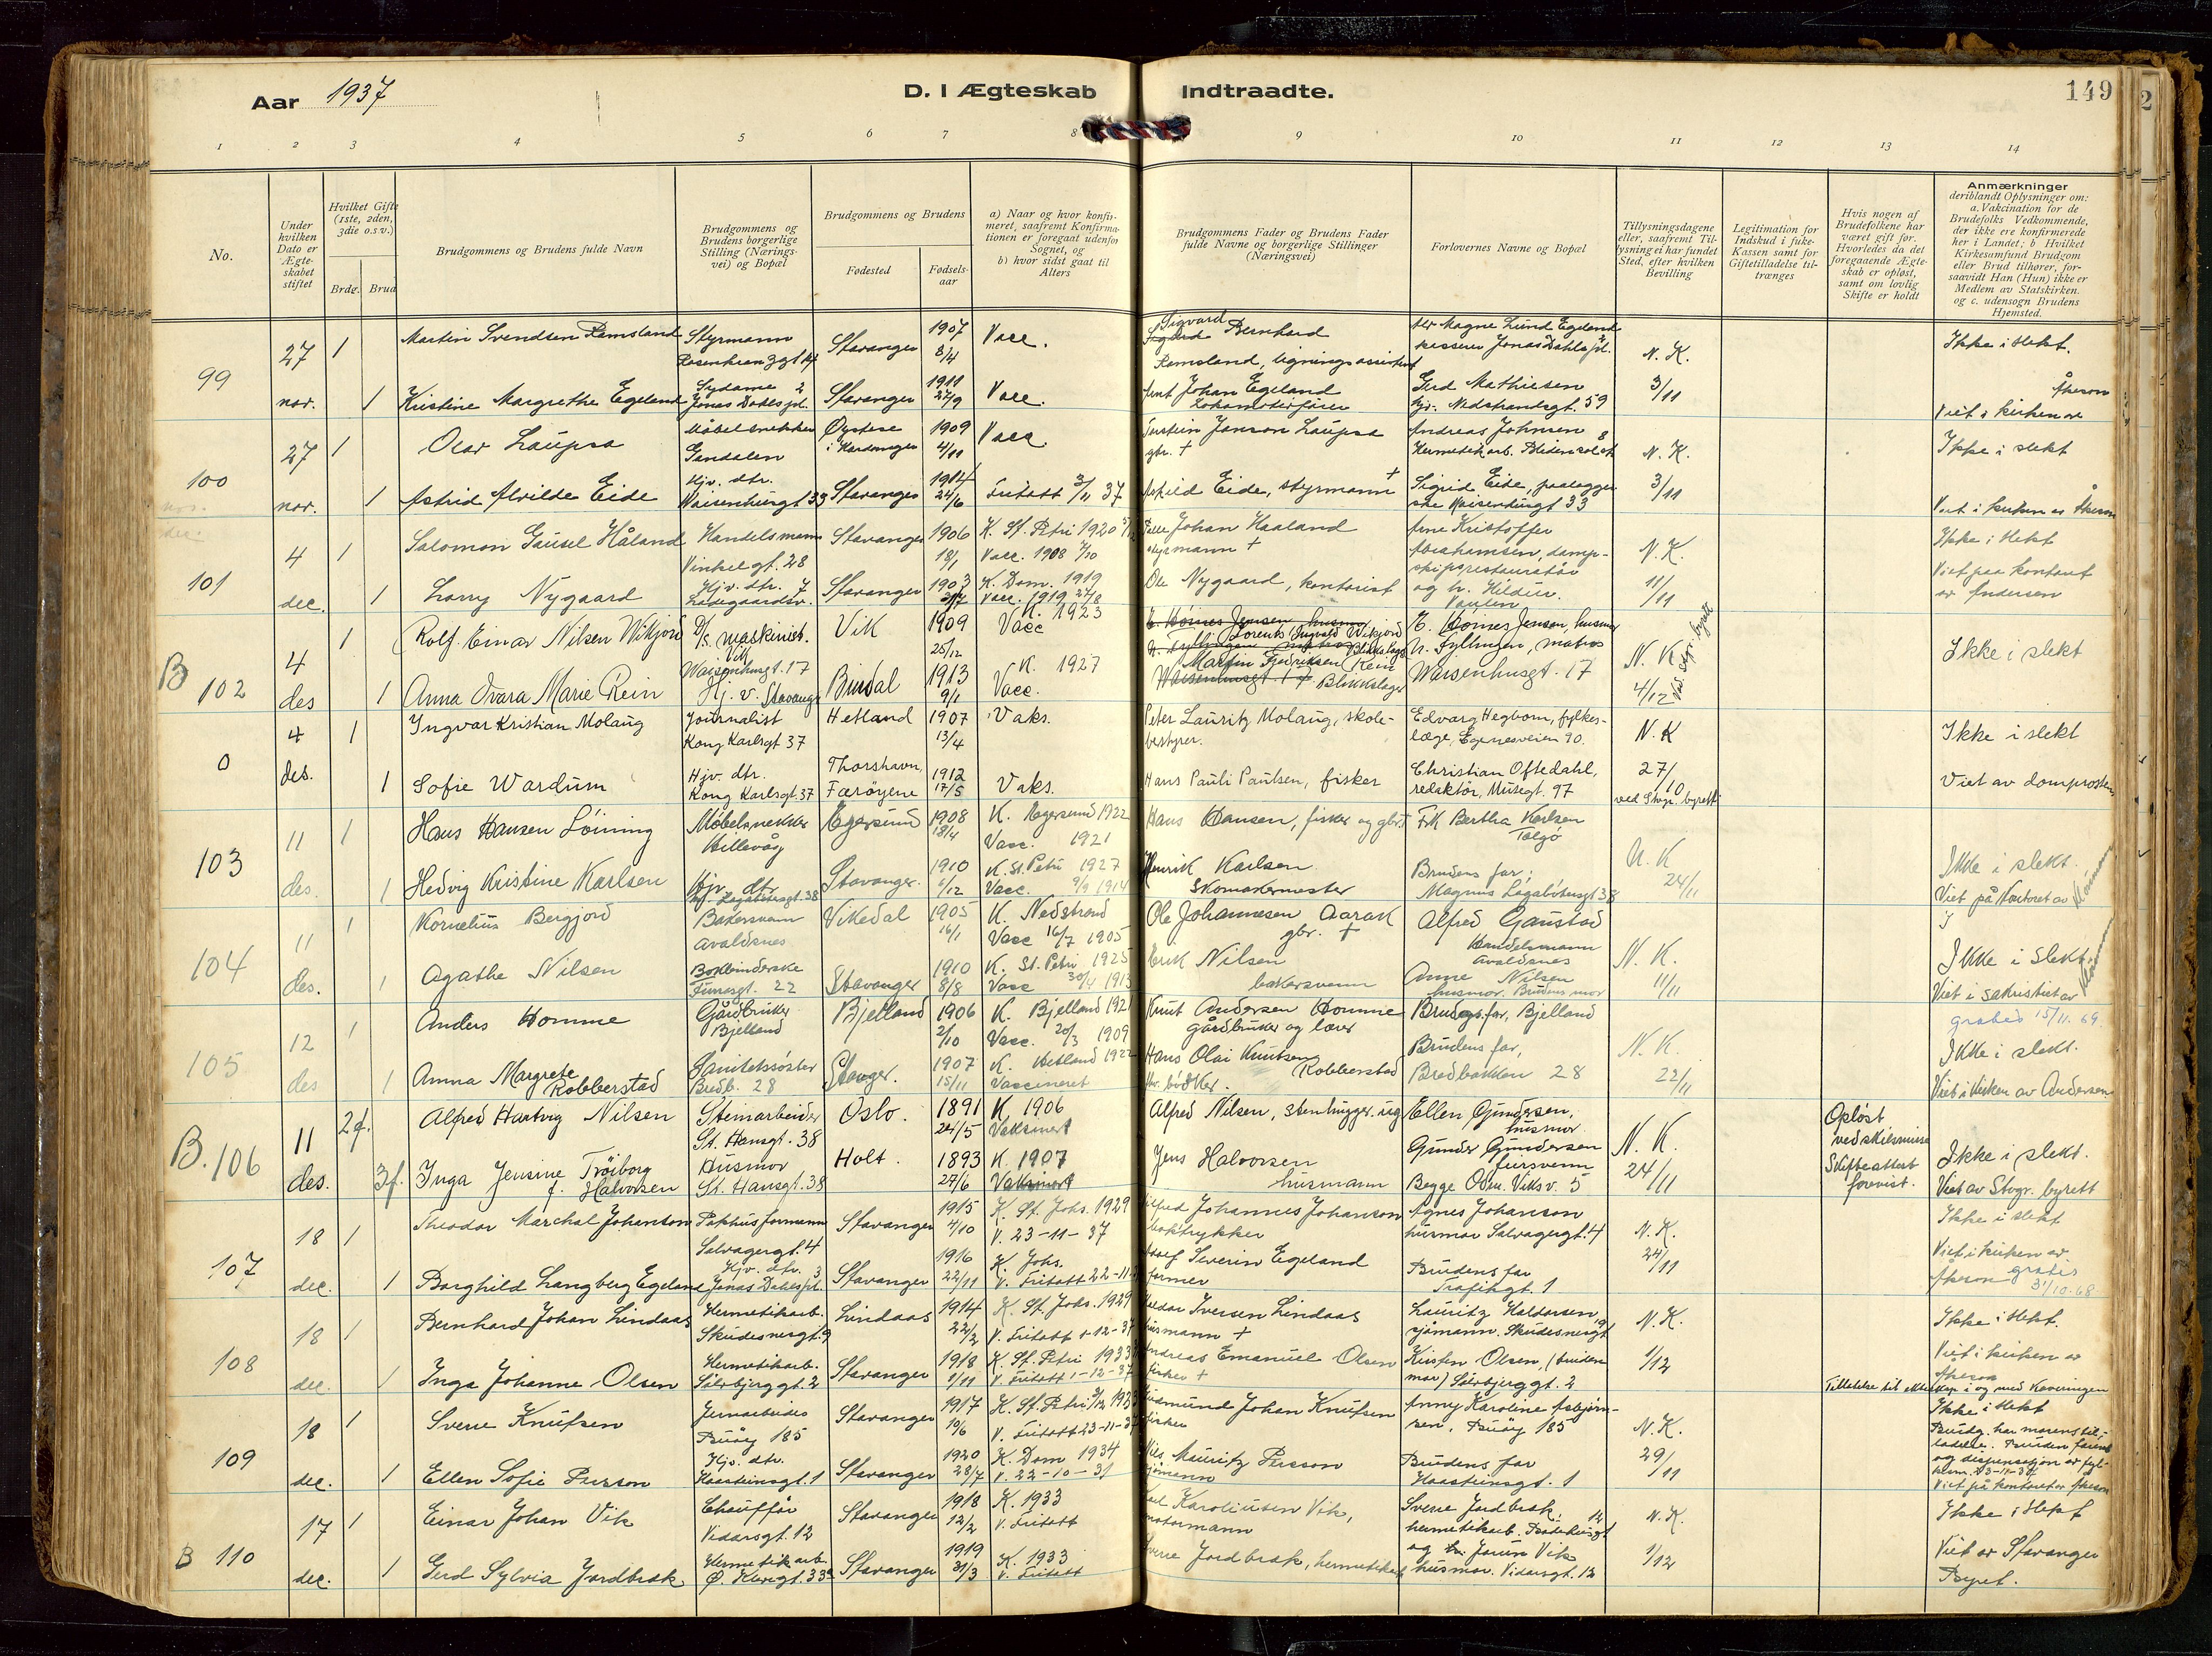 Aar 1937
D. I Ægteskab Indtraadte.
149
2
1 2 3 4 5 6 7 8 9 10 11 12 13 14
No.
Under hvilken Dato er Ægteskabet stiftet
Hvilket Gifte (1ste, 2den, 3die o.s.v.)
Brdg. Brud
Brudgommens og Brudens fulde Navn
Brudgommens og Brudens borgerlige Stilling (Næringsvei) og Bopæl
Brudgommens og Brudens
Fødested
Fødselsaar
a) Naar og hvor konfirmeret, saafremt Konfirmationen er foregaat udenfor Sognet, og
b) hvor sidst gaat til Alters
Brudgommens Fader og Brudens Fader fulde Navne og borgerlige Stillinger (Næringsvei)
Forlovernes Navne og Bopæl
Tillysningsdagene eller, saafremt Tillysning ei har fundet Sted, efter hvilken Bevilling
Legitimation for Indskud i fuke-Kassen samt for Giftetilladelse tiltrænges
Hvis nogen af Brudefolkene har været gift før. Hvorledes da det foregaaende Ægteskab er opløst, samt om lovlig Skifte er holdt
Anmærkninger
deriblandt Oplysninger om: a. Vakcination for de Brudefolks Vedkommende, der ikke ere konfirmerede her i Landet; b Hvilket Kirkesamfund Brudgom eller Brud tilhører, forsaavidt Han (Hun) ikke er Medlem av Statskirken. og c. udensogn Brudens Hjemsted.
99
27 nov.
1 Martin Svendsen Ramsland Styrmann Rosenkranzgt 14 Stavanger 1907 8/4 Vacc. Sigvard Bernhard Ramsland, ligningsassistent N. K. Ikke i slekt.
1 Kristine Margrethe Egeland Sydame Jonas Dahls pl. 2 Stavanger 1911 27/9 Vacc. Johan Egeland Lokomotivfører Gerd Mathiesen hjv. Nedstrandsgt. 59 3/11 Viet i kirken av Åkeson
100
27 nov.
1 Olav Laupsa Møbelsnekker Gandalen Øystese i Hardanger 1909 4/11 Vacc. Torstein Janson Laupsa gbr. † Andreas Johnsen N. K. Ikke i slekt
1 Astrid Alvilde Eide Hjv. dtr. Waisenhusgt 33 Stavanger 1914 24/6 Fritatt 3/11 37 Eide, styrmann † Sigrid Eide, Waisenhusgt 33 3/11 Viet i kirken av Åkeson
101
4 dec.
1 Salomon Gausel Håland Handelsmann Vinkelgt. 28 Stavanger 1906 18/1 K. St. Petri 1920 Vacc. 1908 Johan Haaland styrmann † Arne Kristoffer Abrahamsen, dampskipsrestauratør N. K. Ikke i slekt
1 Larry Nygaard Hjv. dtr. Ladegaardsv. 7 Stavanger 1903 K. Dom. 1919 Vacc. 1919 27/8 Ole Nygaard, kontorist og h. Hildur. Vaulen 11/11 Viet paa kontoret av Andersen
B 102
4 des
1 Rolf Einar Nilsen Wikjord D/s maskinist. Vik Vik 1909 25/12 K. 1923 Vacc Lorents Ingvald Wikjord E. Hornes Jensen, husmor N. Fyllingen, matros N. K Ikke i slekt
1 Anna Ovara Marie Rein Waisenhusgt. 17 Hj. v. Stavanger Bindal 1913 9/1 K. 1927 Vacc. Martin Fredriksen Rein Blikkslager Waisenhusgt. 17 4/12 Ved Stgr. byrett
0
4 des.
1 Ingvar Kristian Molaug Journalist Kong Karlsgt 37 Hetland 1907 13/4 Vaks. Peter Lauritz Molaug, skolebestyrer. Edvarg Hegbom, fylkeslæge, Egenesveien 90. N. K Ikke i slekt
1 Sofie Wardum Hjv. dtr. Kong Karlsgt. 37 Thorshavn, Færøyene 1912 17/5 Vaks. Hans Pauli Paulsen, fisker Christian Oftedahl, redaktør, Musegt. 97 27/10 ved Stvgr. byrett Viet av domprosten
103
11 des.
1 Hans Hansen Løining Møbelsnekker Hillevåg Egersund 1908 18/4 K. Egersund 1922 Vacc. 1921 Hans Hansen, fisker og gbr. Frk Bertha Karlsen Talgø N. K Ikke i slekt.
1 Hedvig Kristine Karlsen Hjv. dtr. M. Lagabøtersgt. 38 Stavanger. 1910 1/12 K. St. Petri 1927 Vacc. 9/9 1914 Henrik Karlsen Skomakermester Brudens far; Magnus Lagabøtersgt 38 24/11 Viet på Kontoret av
104
11 des.
1 Kornelius Bergjord Bakersvenn Avaldsnes Vikedal 1905 16/1 K. Nedstrand Vacc 16/7 1905 Ole Johannesen Aarak gbr. † Alfred Gaustad Handelsmann Avaldsnes N. K. Ikke i slekt.
1 Agathe Nilsen Bokbinderske Tunsgt. 22 Stavanger 1910 8/8 K. St. Petri 1925 Vacc 30/4 1913 Erik Nilsen bakersvenn Anne Nilsen husmor. Brudens mor 11/11 Viet i sakristiet av
105
12 des
1 Anders Homme Gårdbruker Bjelland Bjelland 1906 2/10 K. Bjelland 1921 Vacc. 20/3 1909 Knut Andersen Homme gårdbruker og lærer Brudgs. far, Bjelland N. K. grabed 15/11. 69. Ikke i slekt.
1 Anna Margrete Robberstad Sanitetssøster Bredb. 28 Stavger. 1907 15/11 K. Hetland 1922 Vaccineret Hans Olai Knutsen Robberstad bødker. Brudens far, Bredbakken 28 22/11 Viet i kirken av Andersen
B. 106
11 des.
2 f. Alfred Hartvig Nilsen Steinarbeider St. Hansgt. 38 Oslo. 1891 24/5 K. 1906 Vaksinert Alfred Nilsen, stenhugger. Ellen Gundersen, husmor N. K. Opløst ved skilsmisse Ikke i slekt.
3 f. Inga Jensine Trøiborg f. Halvorsen Husmor St. Hansgt. 38 Holt. 1893 27/6 K. 1907 Vaksinert Jens Halvorsen husmann Gunder Gundersen Begge Odm. Viksv. 5 24/11 Skifteattest forevist. Viet av Stvgr. byrett
107
18 dec.
1 Theodor Marchal Johanson Paphusformann Solvagergt. 4 Stavanger 1915 4/10 K. St. Johs. 1929 V. 23-11-37 Johannes Johanson boktrykker Agnes Johanson husmor Solvagergt. 4 N. K. Ikke i slekt
1 Borghild Langberg Egeland Hjv. dtr. Jonas Dahls pl. 3 Stavanger 1916 22/11 K. Johs. V. Fritatt 22-11 Severin Egeland former Brudens far Trafikgt. 1 24/11 Viet i kirken av Åkeson gratis 31/10-68
108
18 dec.
1 Bernhard Johan Lindaas Hermetikarb. Skudesnesgt. 9 Lindaas 1914 22/2 K. St. Johs. 1929 V. Fritatt 1-12-37 Iversen Lindaas husmann † Lauritz Haldorsen, sjømann. Skudesnesgt 9 N. K. Ikke i slekt.
1 Inga Johanne Olsen Hermetikarb. Sølvbjerggt. 2 Stavanger 1918 1/11 K. St. Petri 1933 V. Fritatt 1-12-37 Andreas Emanuel Olsen fisker † Kirsten Olsen, (brudens mor) Sølvbjerggt. 2 1/12 Viet i kirken av Åkeson
109
18 dec.
1 Sverre Knutsen Jernarbeider Buøy 185 Stavanger 1917 10/6 K. St. Petri 1933 V. Fritatt 23-11-37 Gudmund Johan Knutsen fisker Anny Karoline Asbjørnsen, Buøy 185 N. K. Ikke i slekt
1 Ellen Sofie Persson Hjv. dtr. Haasteinsgt. 1 Stavanger 1920 28/7 K. Dom 1934 V. 22-10-31 Nils Mauritz Persson sjømann Brudens far Haasteinsgt. 1 29/11 Viet på kontoret av Åkeson
B 110
17 dec.
1 Einar Johan Vik Chauffør Vidarsgt. 12 Stavanger 1918 12/2 K. 1933 V. Fritatt Karl Karoliusen Vik, motormann Sverre Jordbrek, hermetikarb. N. K. Ikke i slekt
1 Gerd Sylvia Jordbrek Hermetikarb. Ø. Kleivgt. 33 Stavanger 1919 31/3 K. 1933 V. Fritatt Sverre Jordbrek, hermetikarb og Vik husmor. Vidarsgt. 12 1/12 Viet av Stavanger Byret.